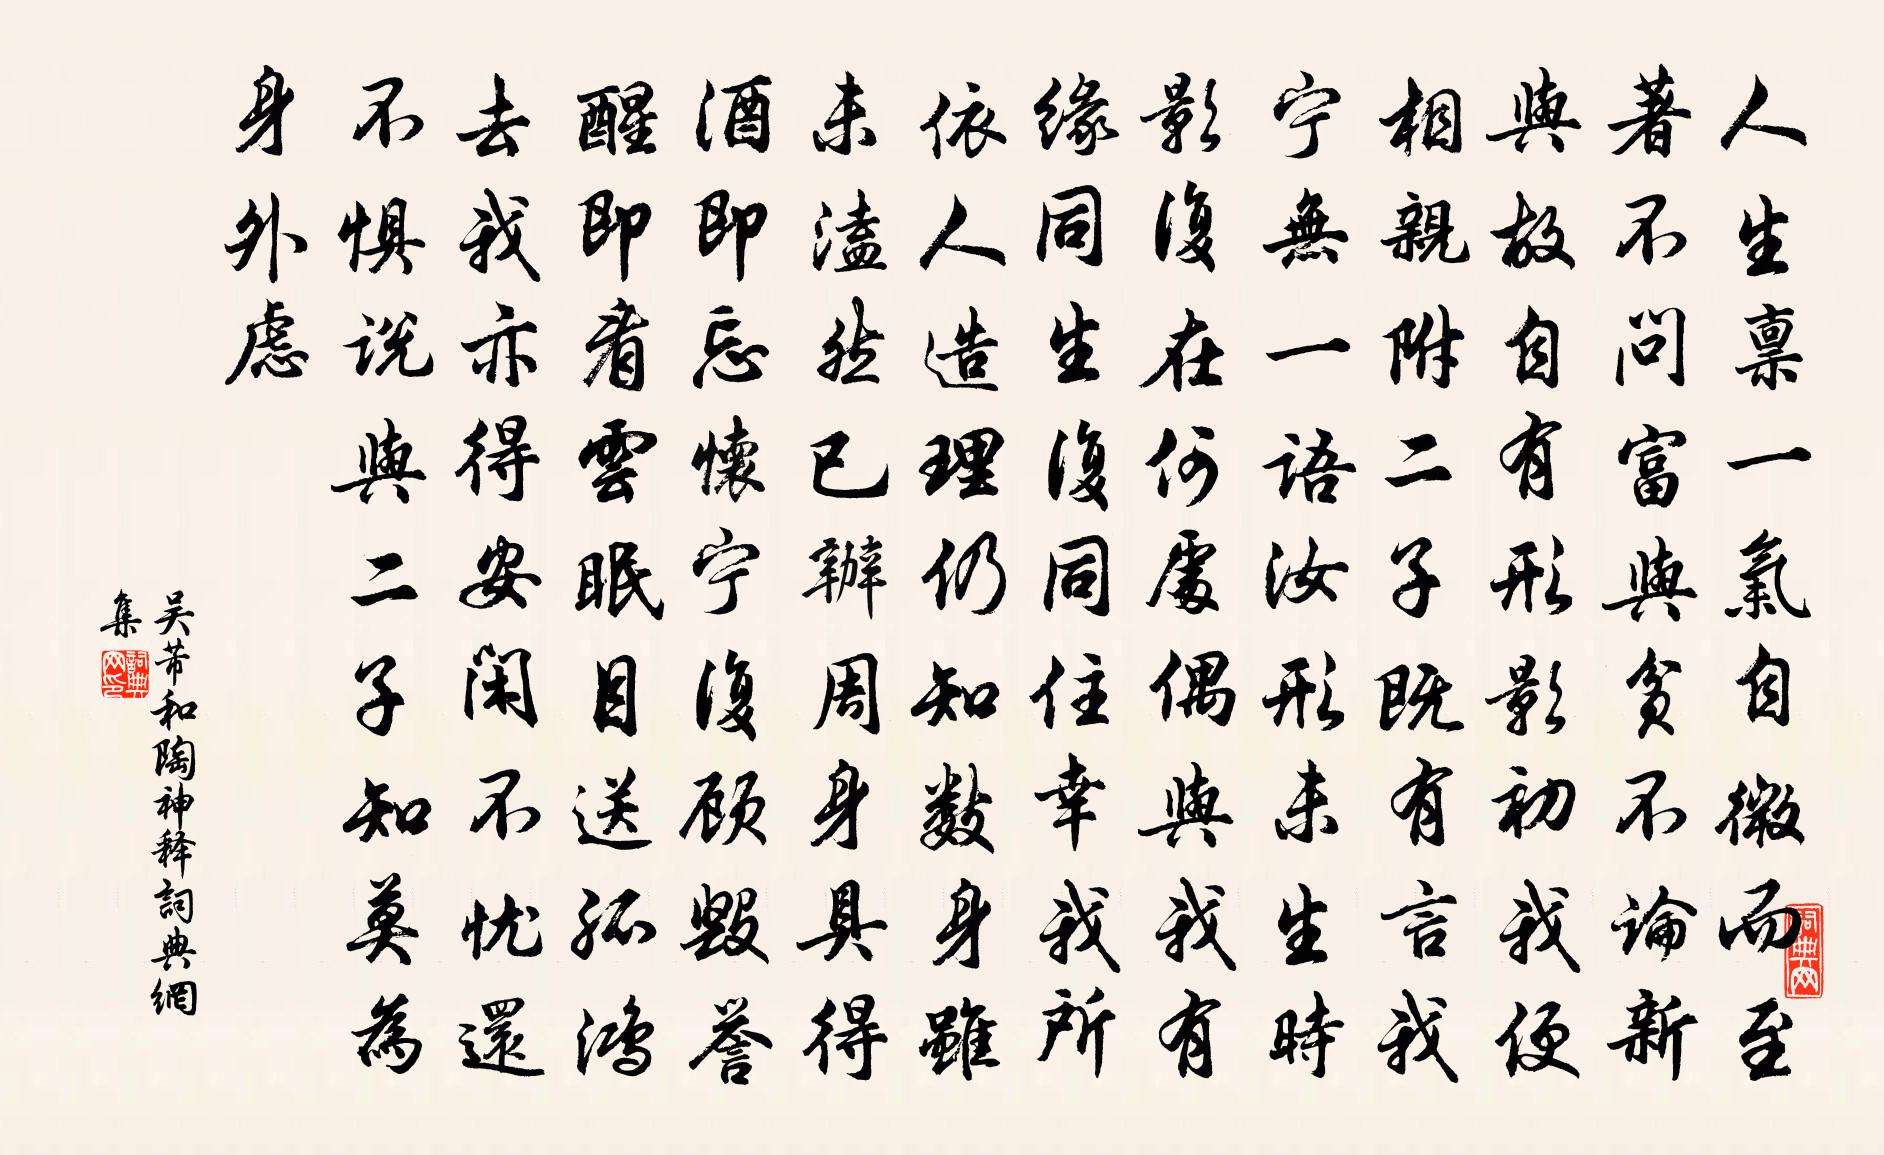 人生禀一氣自微而至
著不問富與貧不論新
與故自有形影初我便
相親附二子既有言我
宁無一語汝形未生時
影復在何處偶與我有
緣同生復同住幸我所
依人造理仍知數身雖
未溘然已辦周身具得
酒即忘懷宁復顾毀誉
醒即看雲眠目送孤鸿
去我亦得安闲不忧還
不惧说與二子知莫為
身外慮
吴芾和陶神释詞典網
集
詞典网
詞典网印